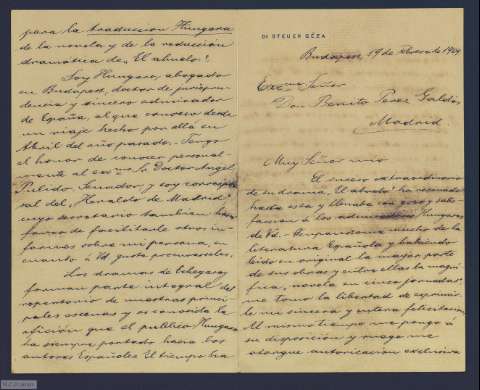 DR STEUER GÉZA
Budapest, 19 de Febrero de 1904
Excmo Señor
Don Benito Perez Galdós
Madrid
Muy Señor mio
El suceso extraordinario
de su drama, El abuelo" ha resonado
hasta esta y llenaba con gozo y satis
faccion á los admiradores Hungaros
de Vd. - Aficionadisimo mucho de la
literatura Española y habiendo
leido en original la mayor parte
de sus obras y entre ellas la magni
fica, novela en cinco jornadas"
me tomo la libertad de expresar
le mi sincera y entera felicitacion
Al mismo tiempo me pongo á
su disposicion y ruego me
otorgue autorizacion exclusiva
para la traduccion Hungara
de la novela y de la reduccion
dramática de, El abuelo".
Soy Hungaro, abogado
en Budapest, doctor de jurispru
dencia y sincero admirador
de España, al que conozco desde
un viaje hecho por allá en
Abril del año pasado. - Tengo
el honor de conocer personal-
mente al Excmo Sr Doctor Angel
Pulido, Senador, y soy corresponsal
del, Heraldo de Madrid"
cuyo secretario tambien hará
favor de facilitarle otros in
formes sobre mi persona, en
cuanto á Vd guste procurarselos.
Los dramas de Echegaray
forman parte integral del
repertorio de nuestras princi
pales escenas y es conocida la
aficion que el publico Hungaro
ha siempre portado hacia los
autores Españoles. El tiempo ha